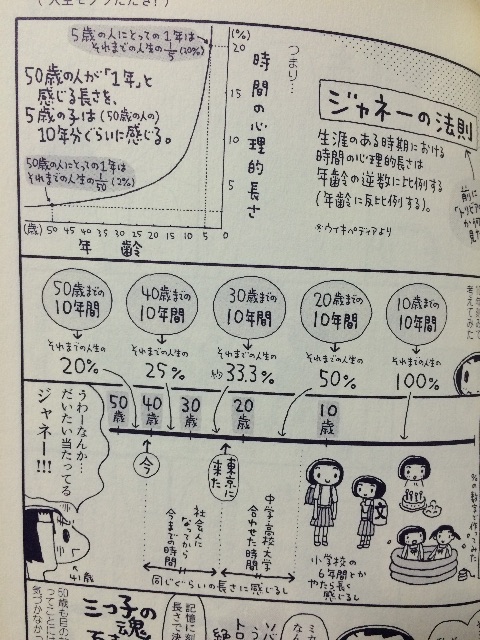 ジャネーの法則
生涯のある時期における
時間の心理的長さは
年齢の逆数に比例する
(年齢に反比例する)。
※ウィキペディアより
つまり…
時間の心理的長さ
(%)
20
15
10
5
5歳の人にとっての1年は
それまでの人生の1/5(20%)
50歳の人が「1年」と
感じる長さを、
5歳の子は(50歳の人の)
10年分ぐらいに感じる。
50歳の人にとっての1年は
それまでの人生の1/50(2%)
(歳) 50 45 40 35 30 25 20 15 10 5
年齢
考えてみた
10歳までの
10年間
それまでの人生の
100%
20歳までの
10年間
それまでの人生の
50%
30歳までの
10年間
それまでの人生の
約33.3%
40歳までの
10年間
それまでの人生の
25%
50歳までの
10年間
それまでの人生の
20%
%の数字で作ってみた
10歳
20歳
30歳
40歳
50歳
小学校の
6年間とか
やたら長く
感じるし
文
東京に
来た
中学高校大学
合わせた時間
今
社会人に
なってから
今までの時間
同じぐらいの長さに感じるし
うわーなんか…
だいたい当たってる
ジャネー!!!
41歳
記憶に刻
長さで決
三つ子の
魂
50歳も目の
ってことに
気づかなかっ